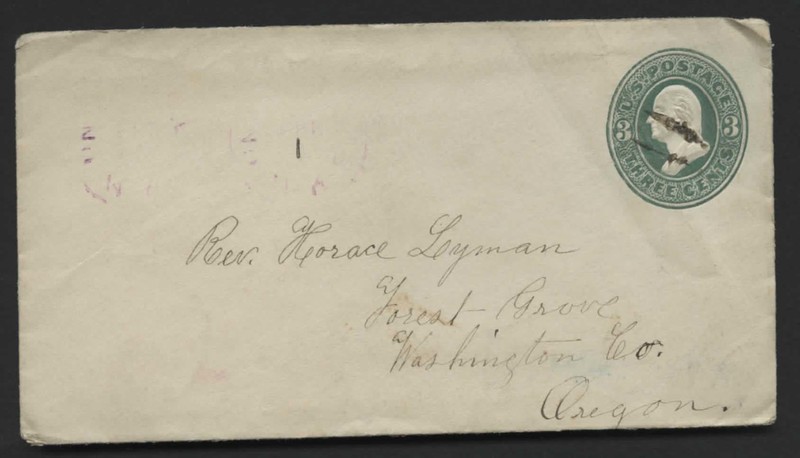 U.S. POSTAGE
3 3
THREE CENTS
Rev. Horace Lyman
Forest Grove
Washington Co.
Oregon.